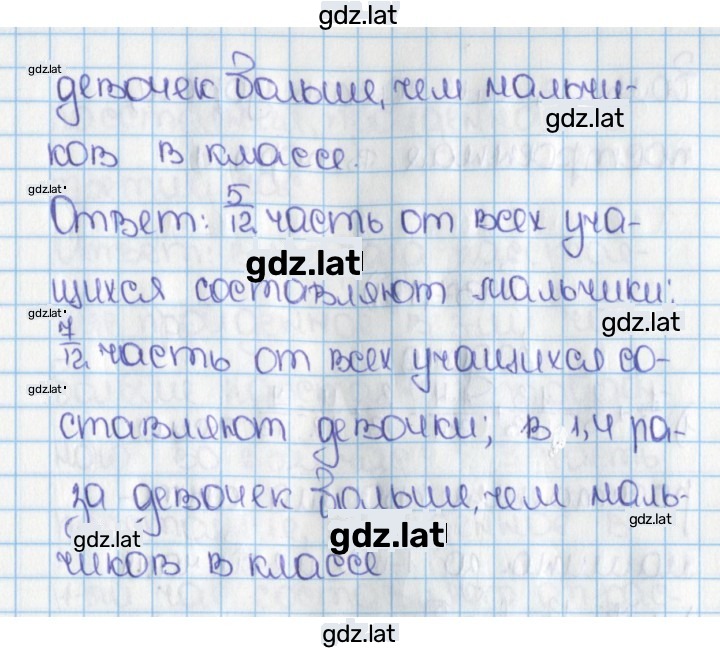 gdz.lat
gdz.lat
девочек больше, чем мальчи-
gdz.lat
ков в классе.
gdz.lat
Ответ: 5/12 часть от всех уча-
gdz.lat
щихся составляют мальчики;
gdz.lat
gdz.lat
7/12 часть от всех учащихся со-
gdz.lat
ставляют девочки; в 1,4 ра-
за девочек больше, чем маль-
gdz.lat
gdz.lat
gdz.lat
чиков в классе
gdz.lat